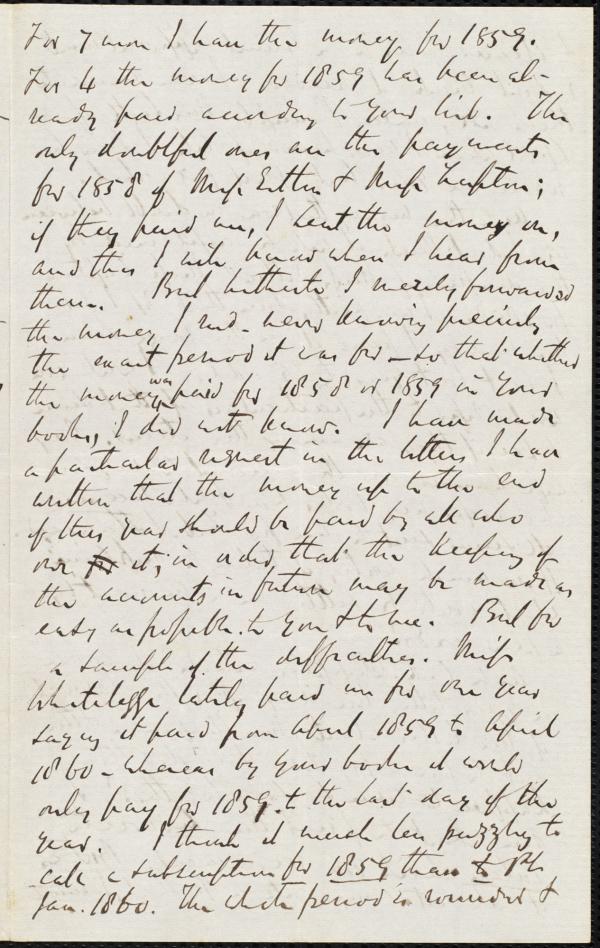 For 7 more I have the money for 1859.
For 4 the money for 1859 has been al-
ready paid according to your list. The
only doubtful ones are the payments
for 1858 of Miss Estlin & Miss Lupton;
if they paid me, I sent the money on,
and this I will know when I hear from
them. But hitherto I merely forwarded
the money I recd. never knowing precisely
the exact period it was for – so that whether
the money was paid for 1858 or 1859 in your
books, I did not know. I have made
a particular request in the letters I have
written that the money up to the end
of this year should be paid by all who
owe for it; in order that the keeping of
the accounts in future may be made as
easy as possible to you & to me. But for
a sample of the difficulties. Miss
Whitelegge lately paid me for one year
saying it paid from April 1859 to April
1860 – whereas by your books it would
only pay for 1859. to the last day of the
year. I think it much less puzzling to
call a subscription for 1859 than to
Jan. 1860. The whole period is rounded &